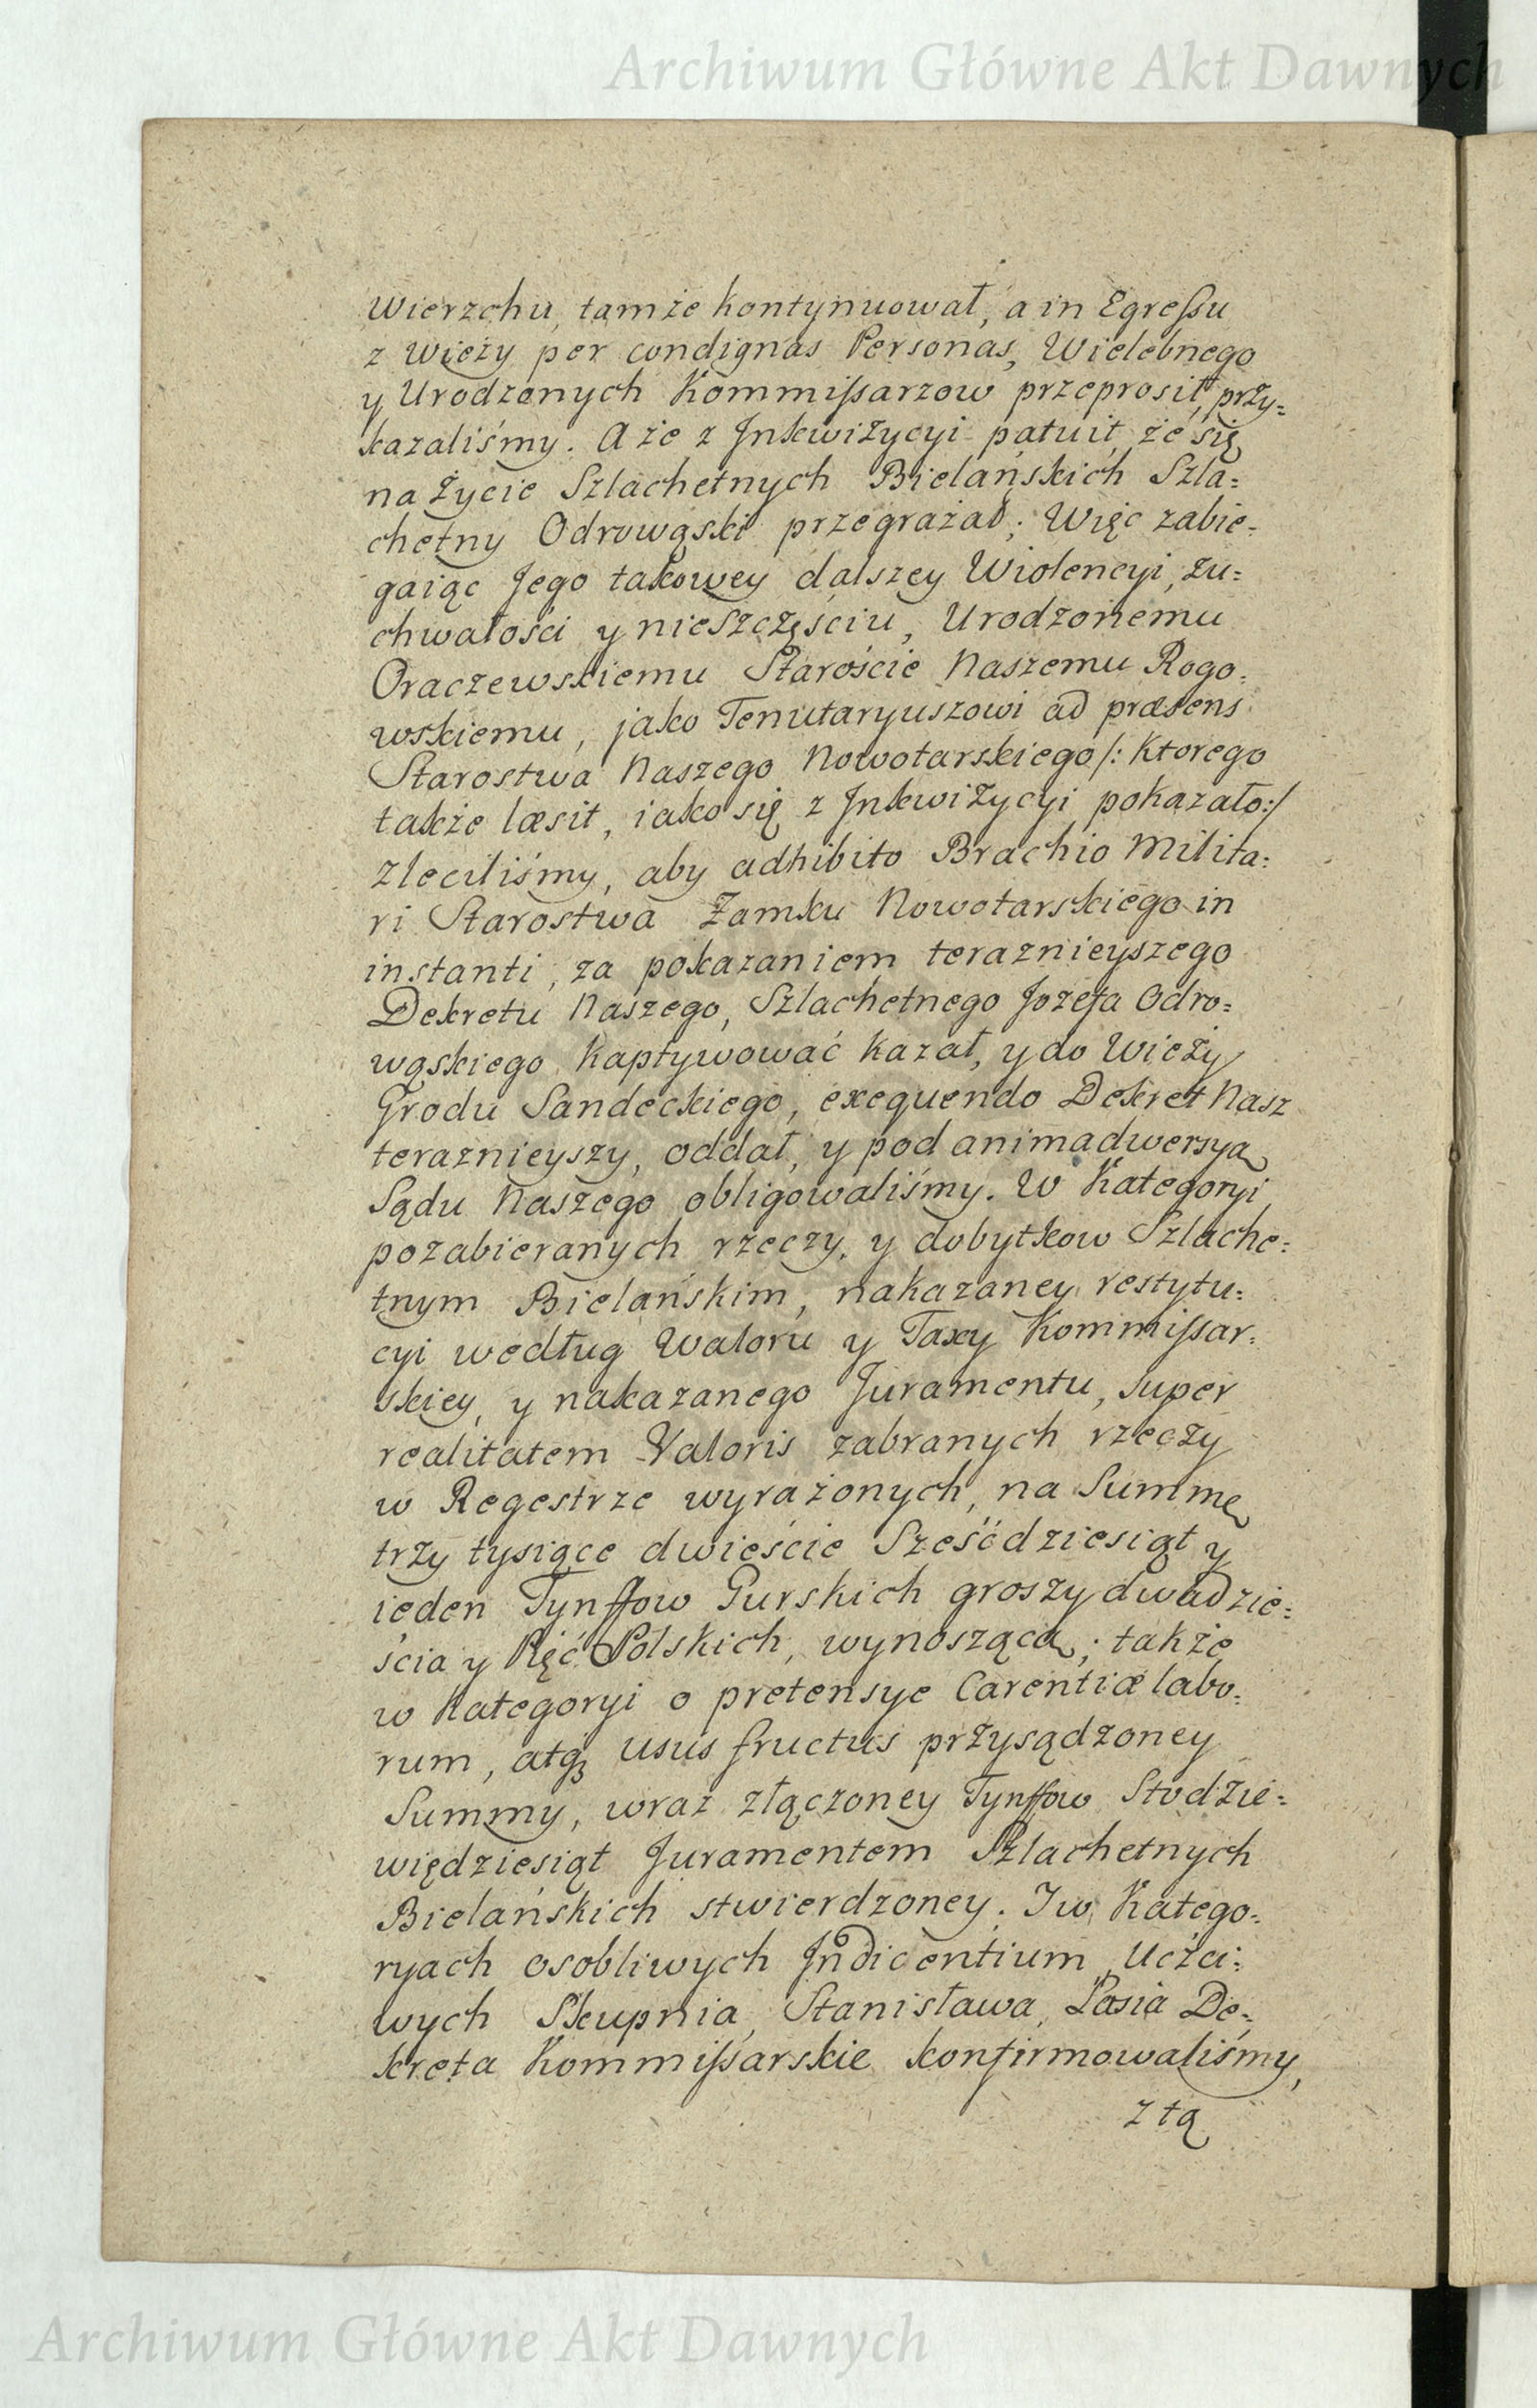 Archiwum Główne Akt Dawnych
Wierzchu, tamże kontynuował, a in Egreſsu
z Wieży per condignas Personas, Wielebnego
y Urodzonych Kommiſsarzow przeprosił, przy=
kazaliśmy. A że z Inkwiżycyi patuit, że się
na życie Szlachetnych Bielańskich Szla=
chetny Odrowąski przegrażał; Więc zabie=
gaiąc Jego takowey dalszey Wiolencyi, zu=
chwałości y nieszczęściu, Urodzonemu
Oraczewskiemu Staroście Naszemu Rogo=
wskiemu, jako Tenutaryuszowi ad præsens
Starostwa Naszego Nowotarskiego /: Ktorego
także læsit, iako się z Inkwiżycyi pokazało :/
zleciliśmy, aby adhibito Brachio Milita=
ri Starostwa Zamku Nowotarskiego in
instanti, za pokazaniem teraznieyszego
Dekretu Naszego, Szlachetnego Jozefa Odro=
wąskiego Kaptywować kazał, y do Wieży
Grodu Sandeckiego, exequendo Dekret Nasz
teraznieyszy, oddał, y pod animadwersyą
Sądu Naszego obligowaliśmy. W Kategoryi
pozabieranych rzeczy, y dobytkow Szlache=
tnym Bielańskim, nakazaney restytu=
cyi według Waloru y Taxy Kommiſsar=
skiey, y nakazanego Juramentu, super
realitatem Valoris zabranych rzeczy
w Regestrze wyrażonych, na Summę
trzy tysiące dwieście Sześćdziesiąt y
ieden Tynffow Gurskich groszy dwadzie=
ścia y Pięć Polskich, wynoszącą; także
w Kategoryi o pretensye Carentiæ labo=
rum, atq₃ usus fructus przysądzoney
Summy, wraz złączoney Tynffow Stodzie=
więdziesiąt Juramentem Szlachetnych
Bielańskich stwierdzoney. I w Katego=
ryach osobliwych Indicentium Uczci=
wych Skupnia, Stanisława, Pasia De=
kreta Kommiſsarskie konfirmowaliśmy,
z tą
Archiwum Główne Akt Dawnych